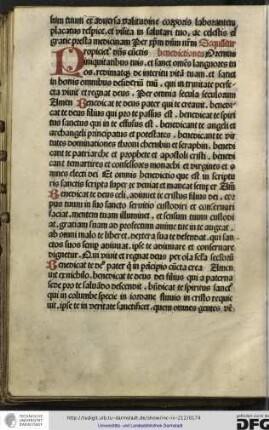 suum tuum et aduersa valitudine corporis laborantem
placatus respice, et visita in salutari tuo, ac celestis
gratie presta medicinam Per xpm dnm nrm
Propicietur dns cunctis benedictiones
iniquitatibus tuis, et sanet omnes languores tu
os, redimatque de interitu vita tuam, et sanet
in bonis omnibus desiderium tuum, qui in trinitate perfe
cta viuit et regnat deus, Per omnia secula seculorum
Amen Benedicat te deus pater qui te creauit, benedi
cat te deus filius qui pro te passus est, benedicat te spiri
tus sanctus qui in te effusus est, benedicant te angeli et
archangeli principatus et potestates, benedicant te vir
tutes dominationes throni cherubin et seraphin, benedi
cant te patriarche et prophete et apostoli cristi, benedi
cant te martires et confessores monachi et virgines et o
mnes electi dei Et omnis benedictio que est in scriptu
ris sanctis scripta super te veniat et maneat semper
Benedicat te deus celi, adiuuet te cristus filius dei, cor
pus tuum in suo sancto seruitio custodiri et conseruari
faciat, mentem tuam illuminet, et sensum tuum custodi
at, gratiam suam ad profectum anime tue in te augeat,
ab omni malo te liberet, dextera sua te defendat, qui san
ctos suos semper adiuuat, ipse te adiuuare et conseruare
dignetur, Qui viuit et regnat deus per omnia secula seculorum
Benedicat te deus pater qui in principio cuncta creauit Amen
benedicat te deus filius qui a paterna
sede pro te saluando descendit, benedicat te spiritus sanctus
qui in columbe specie in iordane fluuio in cristo requie
uit, ipse te in veritate sanctificet, quem omnes gentes
TECHNISCHE UNIVERSITÄT DARMSTADT
Universitäts- und Landesbibliothek Darmstadt
DFG